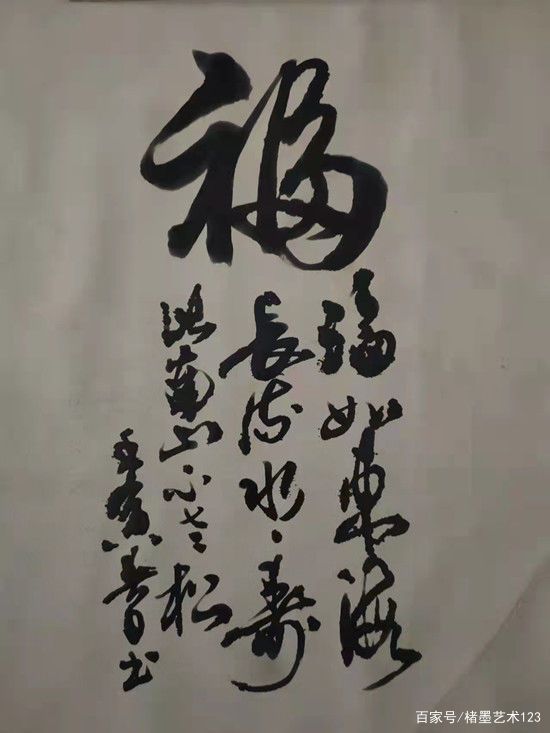 福
福如東海
長流水壽
比南山不老松
书
百家号/楮墨艺术123